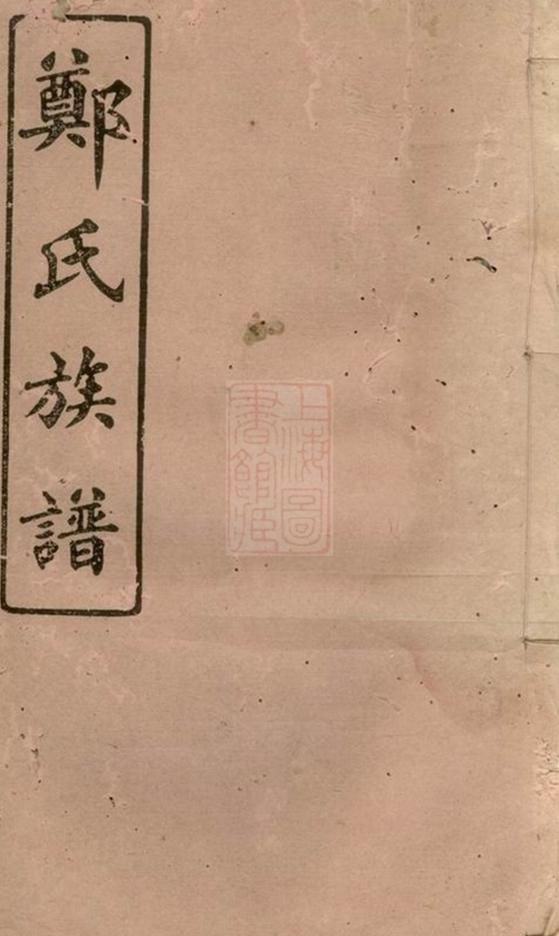 鄭氏族譜
上海圖
書館藏